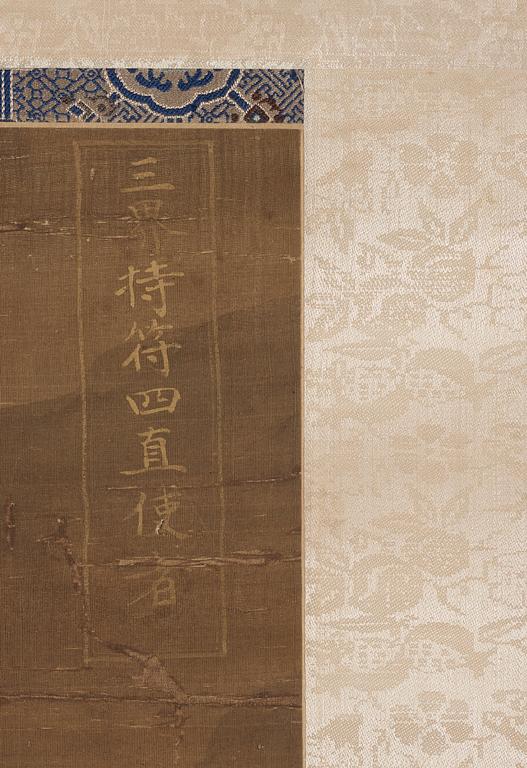 三界持符四直使者